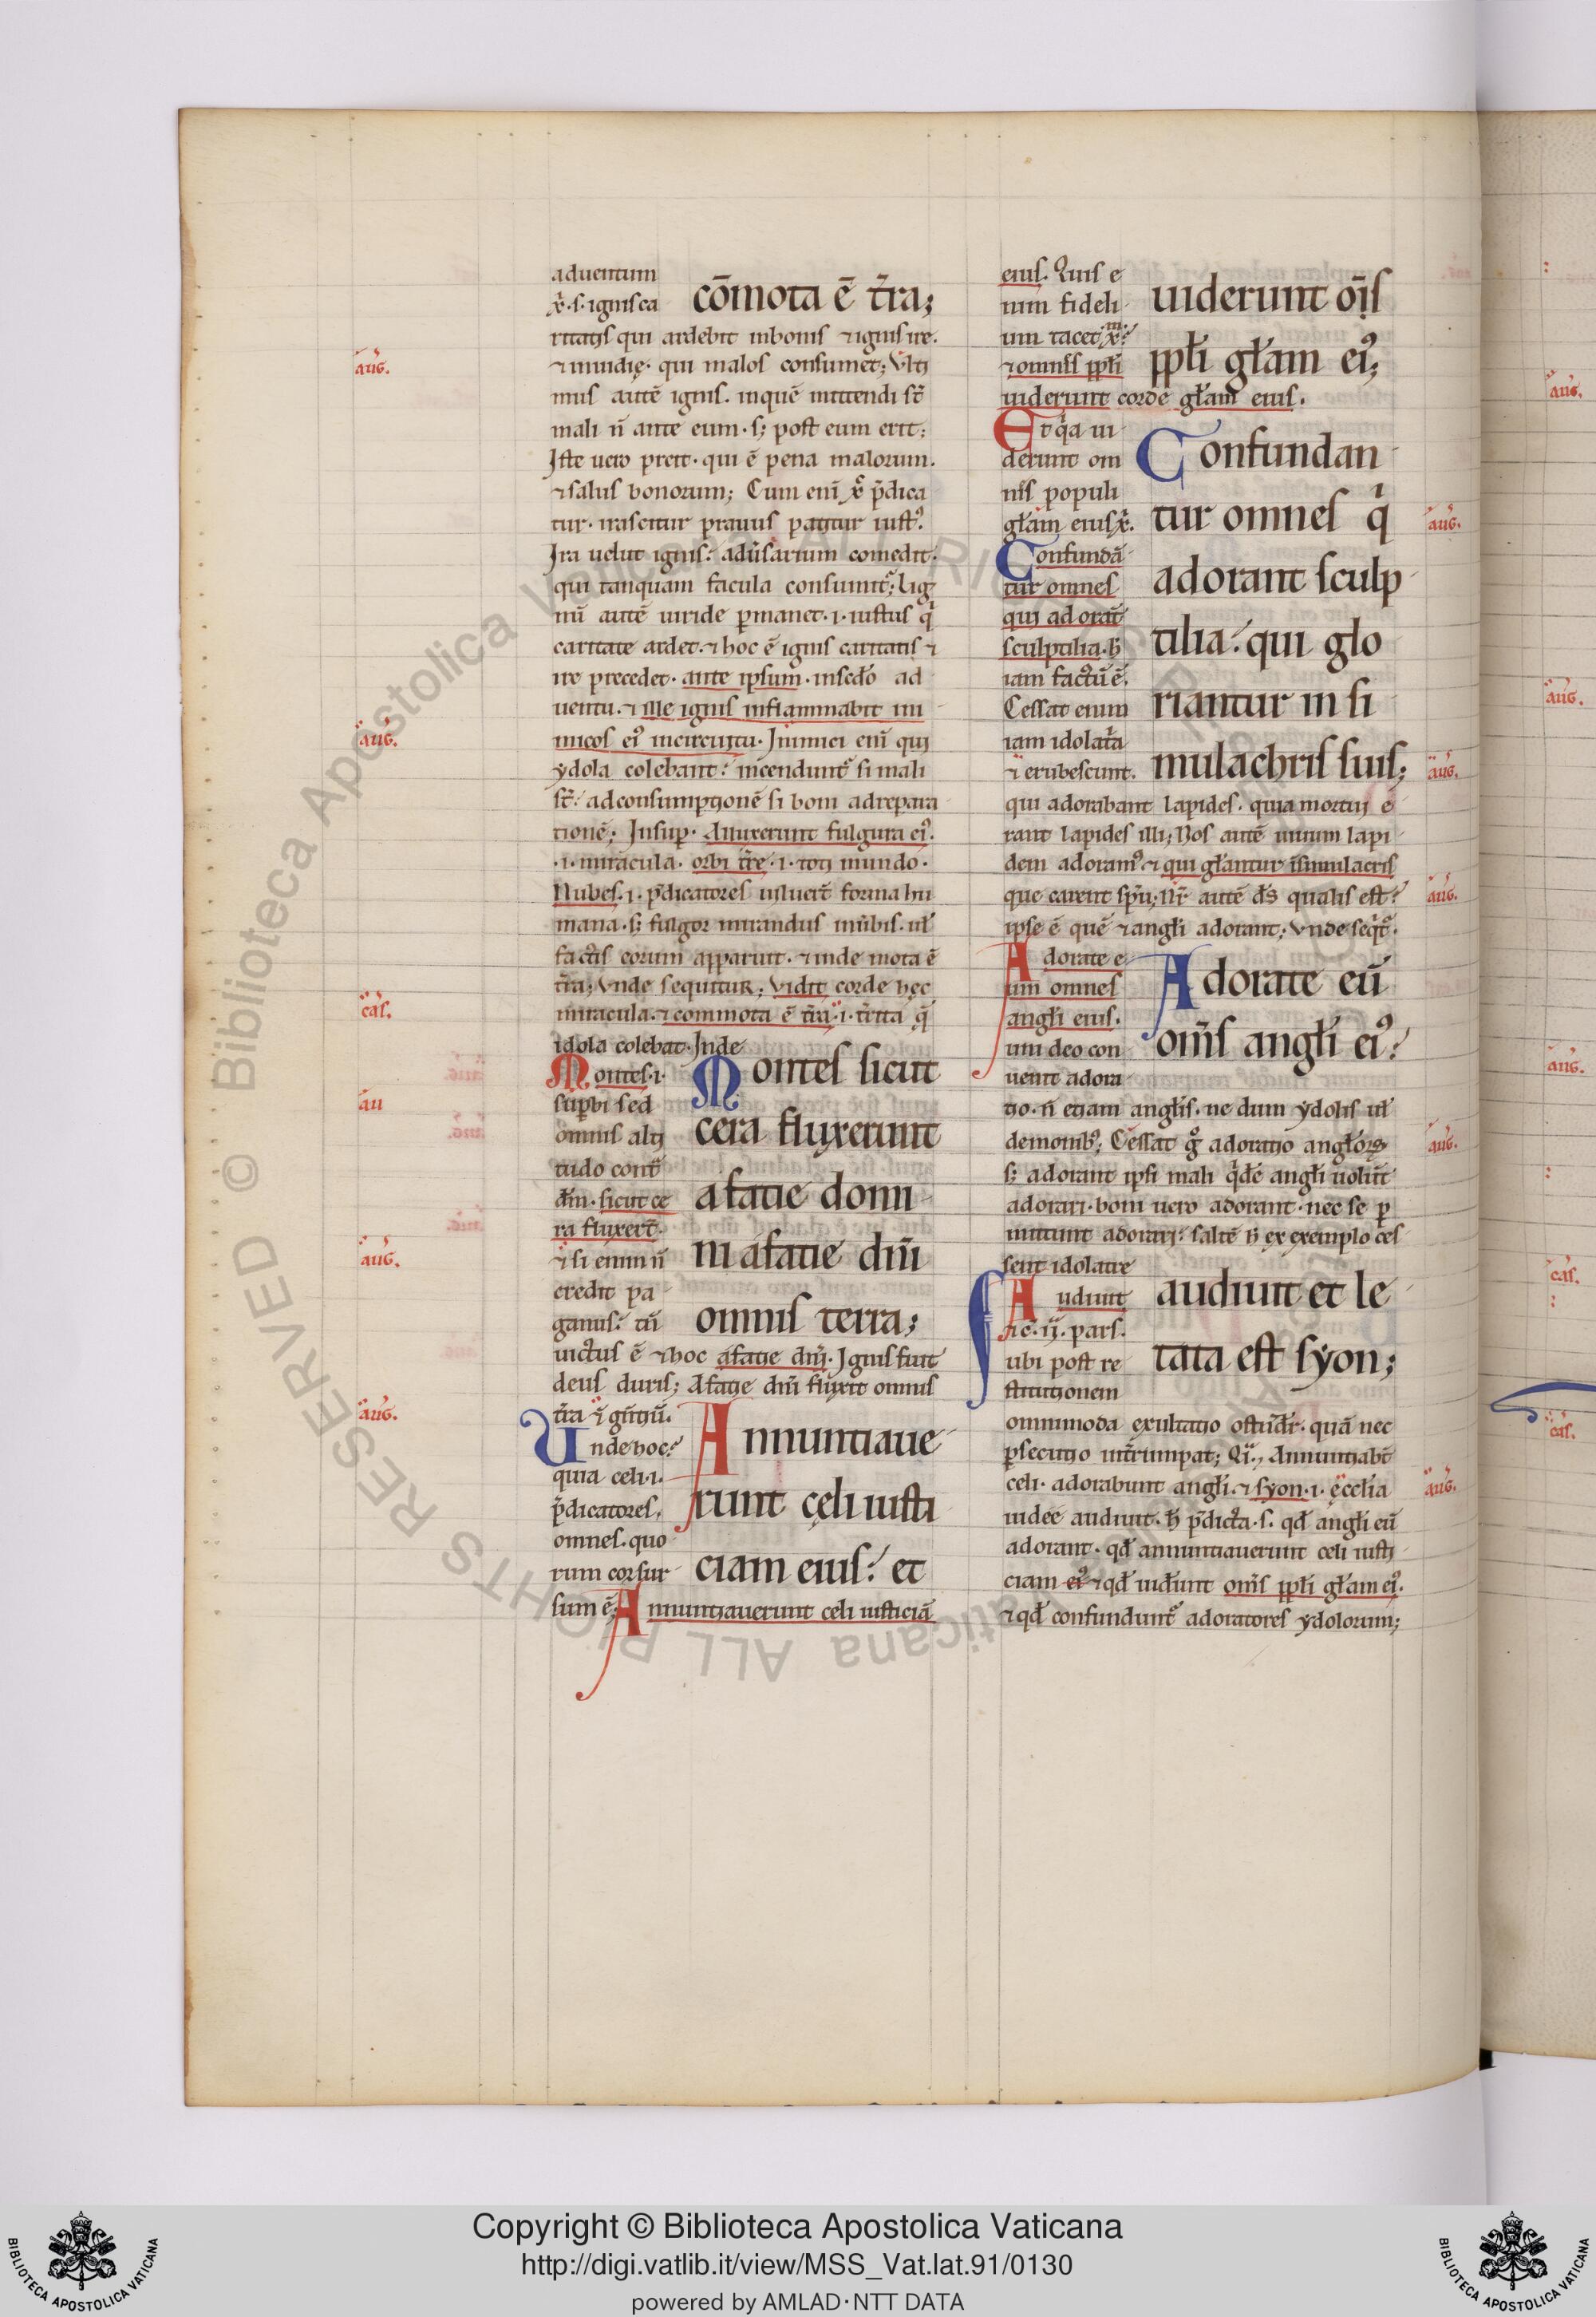 aduentum
x̄·s·ignis ca
cōmota ē t̄ra;
ritatis qui ardebit inbonis ⁊ignis ire·
⁊inuidię· qui malos consumet; Vlti
aug̅.
mus autē ignis· inquē mittendi st̄
mali n̄ ante eum·s; post eum erit;
Iste uero preit· qui ē pena malorum·
⁊salus bonorum; Cum eni x̄ p̄dica
tur· nascitur prauus patitur iustꝰ·
Ira uelut ignis? adu̅sarium comedit·
qui tanquam facula consumit᷑; lig
nū autē uiride ꝑmanet·i·iustus q̇
caritate ardet·⁊hoc ē ignis caritatis ⁊
ire precedet· ante ipsum· insedō ad
uentu·⁊ille ignis inflammabit ini
micos eiꝰ incircuitu· Inimici eni qui
aug̅.
ydola colebant? incendunt᷑ si mali
st̄? adconsumptionē si boni adrepara
tionē; Insuꝑ· Alluxerunt fulgura eiꝰ·
·i·miracula· orbi t̄re·i·toti mundo·
Nubes·i· p̄dicatores uiluer̄t forma hu
mana·s; fulgor mirandus inūbis· uł
factis eorum apparuit·⁊inde mota ē
t̄ra; Vnde sequitur; Vidit corde hęc
cas̅.
miracula·⁊commota ē t̄ra·i·t̄rita q̇
idola colebat· Inde
Montes·i·
suꝑbi sed
au
omnis alti
tudo cont̄
dm̄·sicut ce
ra fluxer̄t·
⁊si enim n̄
aug̅.
credit pa
ganus? tn̄
Montes sicut
cera fluxerunt
a facie domi
ni a facie dn̄i
omnis terra;
uictus ē ⁊hoc a facie dn̄i· Ignis fuit
deus duris; A facie dn̄i fluxit omnis
t̄ra
aug̅.
Vnde hoc?
quia celi·i·
p̄dicatores
omnes· quo
rum corsur
Annuntiaue
runt cęli iusti
ciam eius? et
sum ē; Annuntiauerunt celi iusticiā
eius· Quis e
nim fideli
um tacet x̄?
⁊omnis ppłi
uiderunt oīs
ppłi głam eiꝰ;
uiderunt corde głam eius·
Et q̇a ui
derunt om
nis populi
głam eius x̄·
Confundā
tur omnes
qui adorāt
sculptilia·ħ
iam factū ē·
Cessat enim
iam idolat̄a
⁊ erubescunt·
Confundan
tur omnes q̇
aug̅.
adorant sculp
tilia? qui glo
riantur in si
mulachris suis;
aug̅.
qui adorabant lapides· quia mortui e
rant lapides illi; Nos autē uiuum lapi
dem adoramꝰ ⁊ qui głantur īsimulacris
que carent sp̄u; nr̄ autē ds̄ qualis est?
aug̅.
ipse ē quē ⁊angłi adorant; Vnde seqt᷑·
Adorate e
um omnes
angłi eius·
um deo con
uenit adora
Adorate eū
om̄s angłi eiꝰ?
tio· n̄ etiam angłis· ne dum ydolis uł
demonibꝰ; Cessat g̊ adoratio angłoꝝ
aug̅.
s; adorant ipsi mali q̇dē angłi uolūt
adorari· boni uero adorant· nec se ꝑ
mittunt adorari? saltē ħ ex exemplo ces
sent idolatre
Audiuit
hic·ij·pars·
ubi post re
stitutionem
audiuit et le
tata est syon;
omnimoda exultatio ostūdit᷑· quā nec
ꝑsecutio int̄rumpat; Annuntiab̄t
celi· adorabunt angłi·⁊syon·i·ęccłia
aug̅.
iudee audiuit· ħ p̄dicta·s· qđ angłi eū
adorant· qđ annuntiauerunt celi iusti
ciam eiꝰ ⁊qđ uiđunt om̄s ppłi głam eiꝰ·
⁊qđ confundunt᷑ adoratores ydolorum;
aug̅.
aug̅.
aug̅.
cas̅.
cas̅.
© Biblioteca Apostolica Vaticana ALL RIGHTS RESERVED
Copyright © Biblioteca Apostolica Vaticana
http://digi.vatlib.it/view/MSS_Vat.lat.91/0130
powered by AMLAD·NTT DATA
BIBLIOTECA APOSTOLICA VATICANA
BIBLIOTECA APOSTOLICA VATICANA